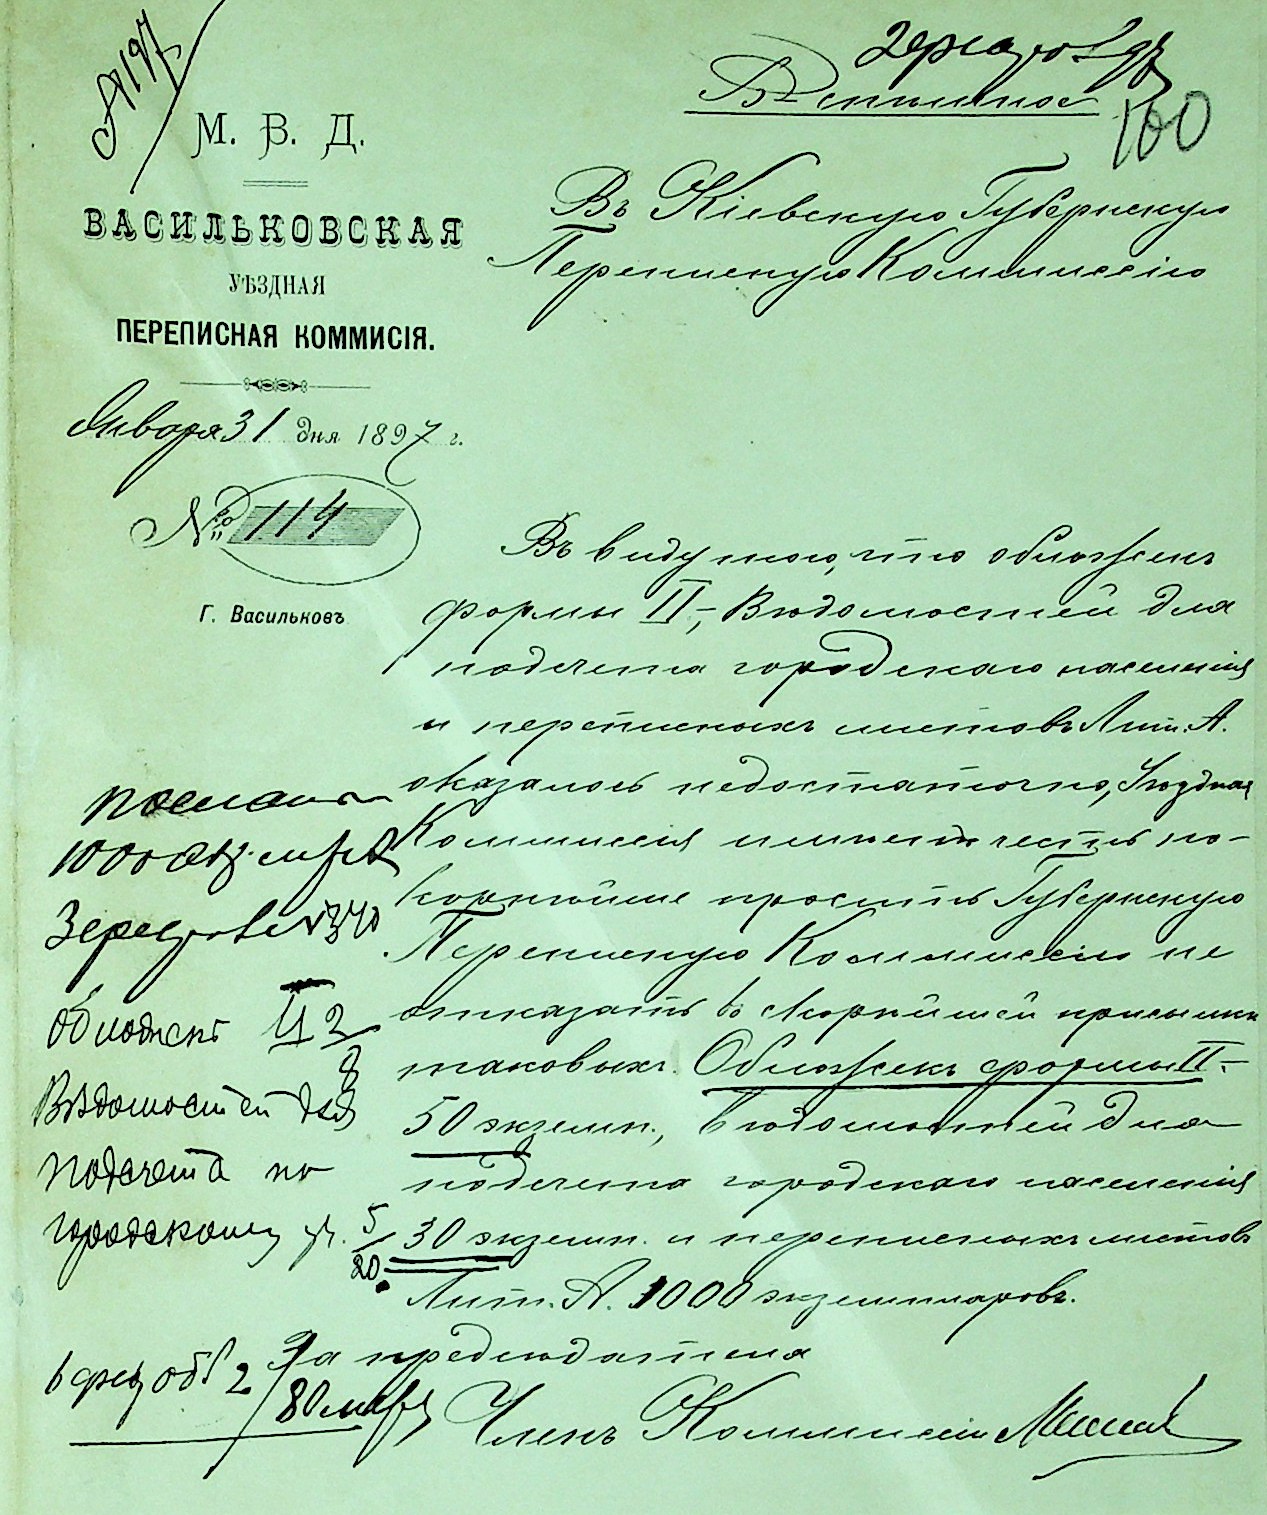 М. В. Д.
ВАСИЛЬКОВСКАЯ
УѢЗДНАЯ
ПЕРЕПИСНАЯ КОММИСІЯ.
Января 31 дня 1897 г.
№ 114
Г. Васильковъ
100
Въ Кіевскую Губернскую
Переписную Коммиссію
Въ виду того, что обложекъ
формы II, Вѣдомостей для
подсчета городскаго населенія
и переписныхъ листовъ Лит. А.
оказалось недостаточно, Уѣздная
Коммиссія имѣетъ честь по-
корнѣйше просить Губернскую
Переписную Коммиссію не
отказать въ скорѣйшей присылкѣ
таковыхъ. Обложекъ формы II-
50 экземп., вѣдомостей для
подсчета городскаго населенія
30 экземп. и переписныхъ листовъ
Лит. А. 1000 экземпляровъ.
За предсѣдателя
Членъ Коммиссіи
послано
1000 экз.
обложекъ II 2
Вѣдомостей для
подсчета по
городскому 5
20